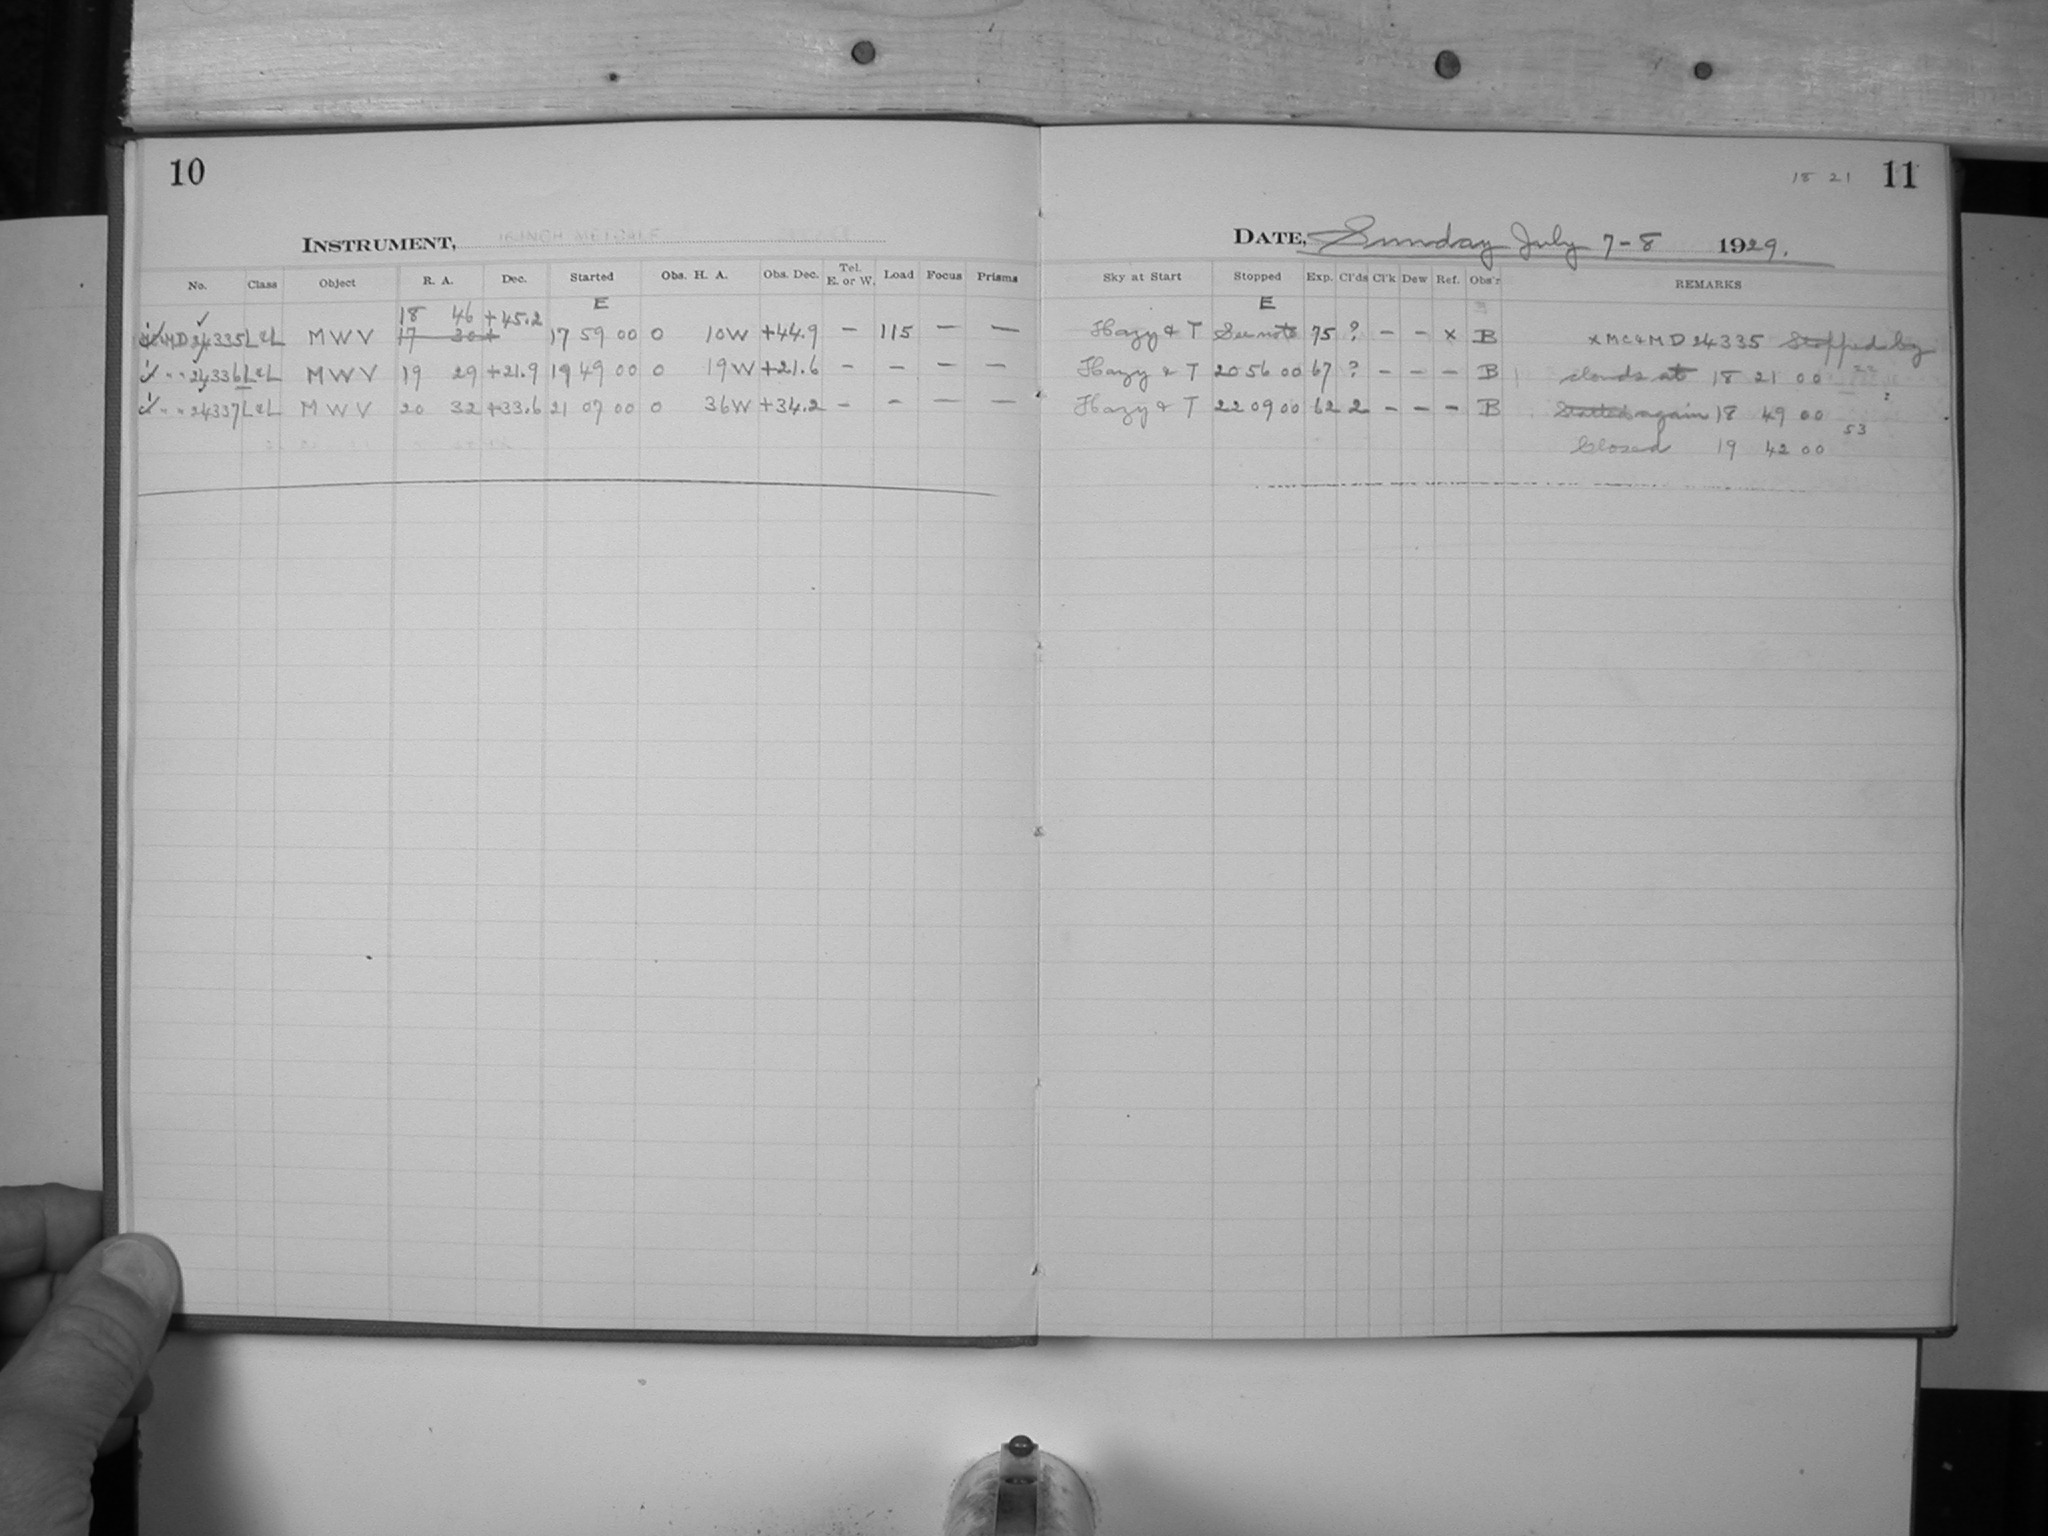 10
INSTRUMENT,
No. Class Object R. A. Dec. Started Obs. H. A. Obs. Dec. Tel. E. or W. Load Focus Prisms
E
18 46 +45.2
MD 24335 L&L MWV 17 30 + 17 59 00 0 10W +44.9 – 115 – –
" " 24336 L&L MWV 19 29 +21.9 19 49 00 0 19W +21.6 – – – –
" " 24337 L&L MWV 20 32 +33.6 21 07 00 0 36W +34.2 – – – –
18 21 11
DATE, Sunday July 7-8 1929.
Sky at Start Stopped Exp. Cl'ds Cl'k Dew Ref. Obs'r REMARKS
E
Hazy & T See note 75 ? – – x B x MC & MD 24335 Stopped by
Hazy & T 20 56 00 67 ? – – – B clouds at 18 21 00 22
Hazy & T 22 09 00 62 2 – – – B Started again 18 49 00
53
Closed 19 42 00